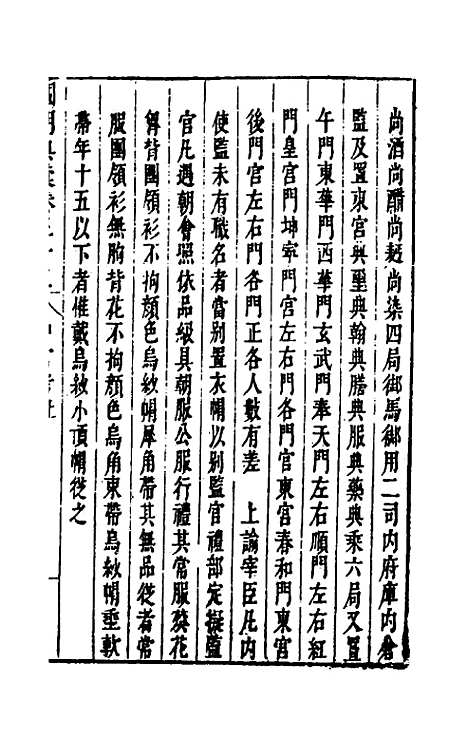 尚酒尚醋尚麵尚染四局御馬御用二司内府庫内倉
監及置東宮典璽典翰典膳典服典藥典乘六局又置
午門東華門西華門玄武門奉天門左右順門左右紅
門皇宮門坤寧門宮左右門各門官東宮春和門東宮
後門宮左右門各門正各人數有差　上諭宰臣凡内
使監未有職名者當别置衣帽以别監官禮部定擬監
官凡遇朝會照依品級具朝服公服行禮其常服葵花
胸背團領衫不拘顔色烏紗帽犀角帶其無品從者常
服團領衫無胸背花不拘顔色烏角束帶烏紗帽垂軟
帶年十五以下者惟戴烏紗小頂帽從之
國朝典彙卷之